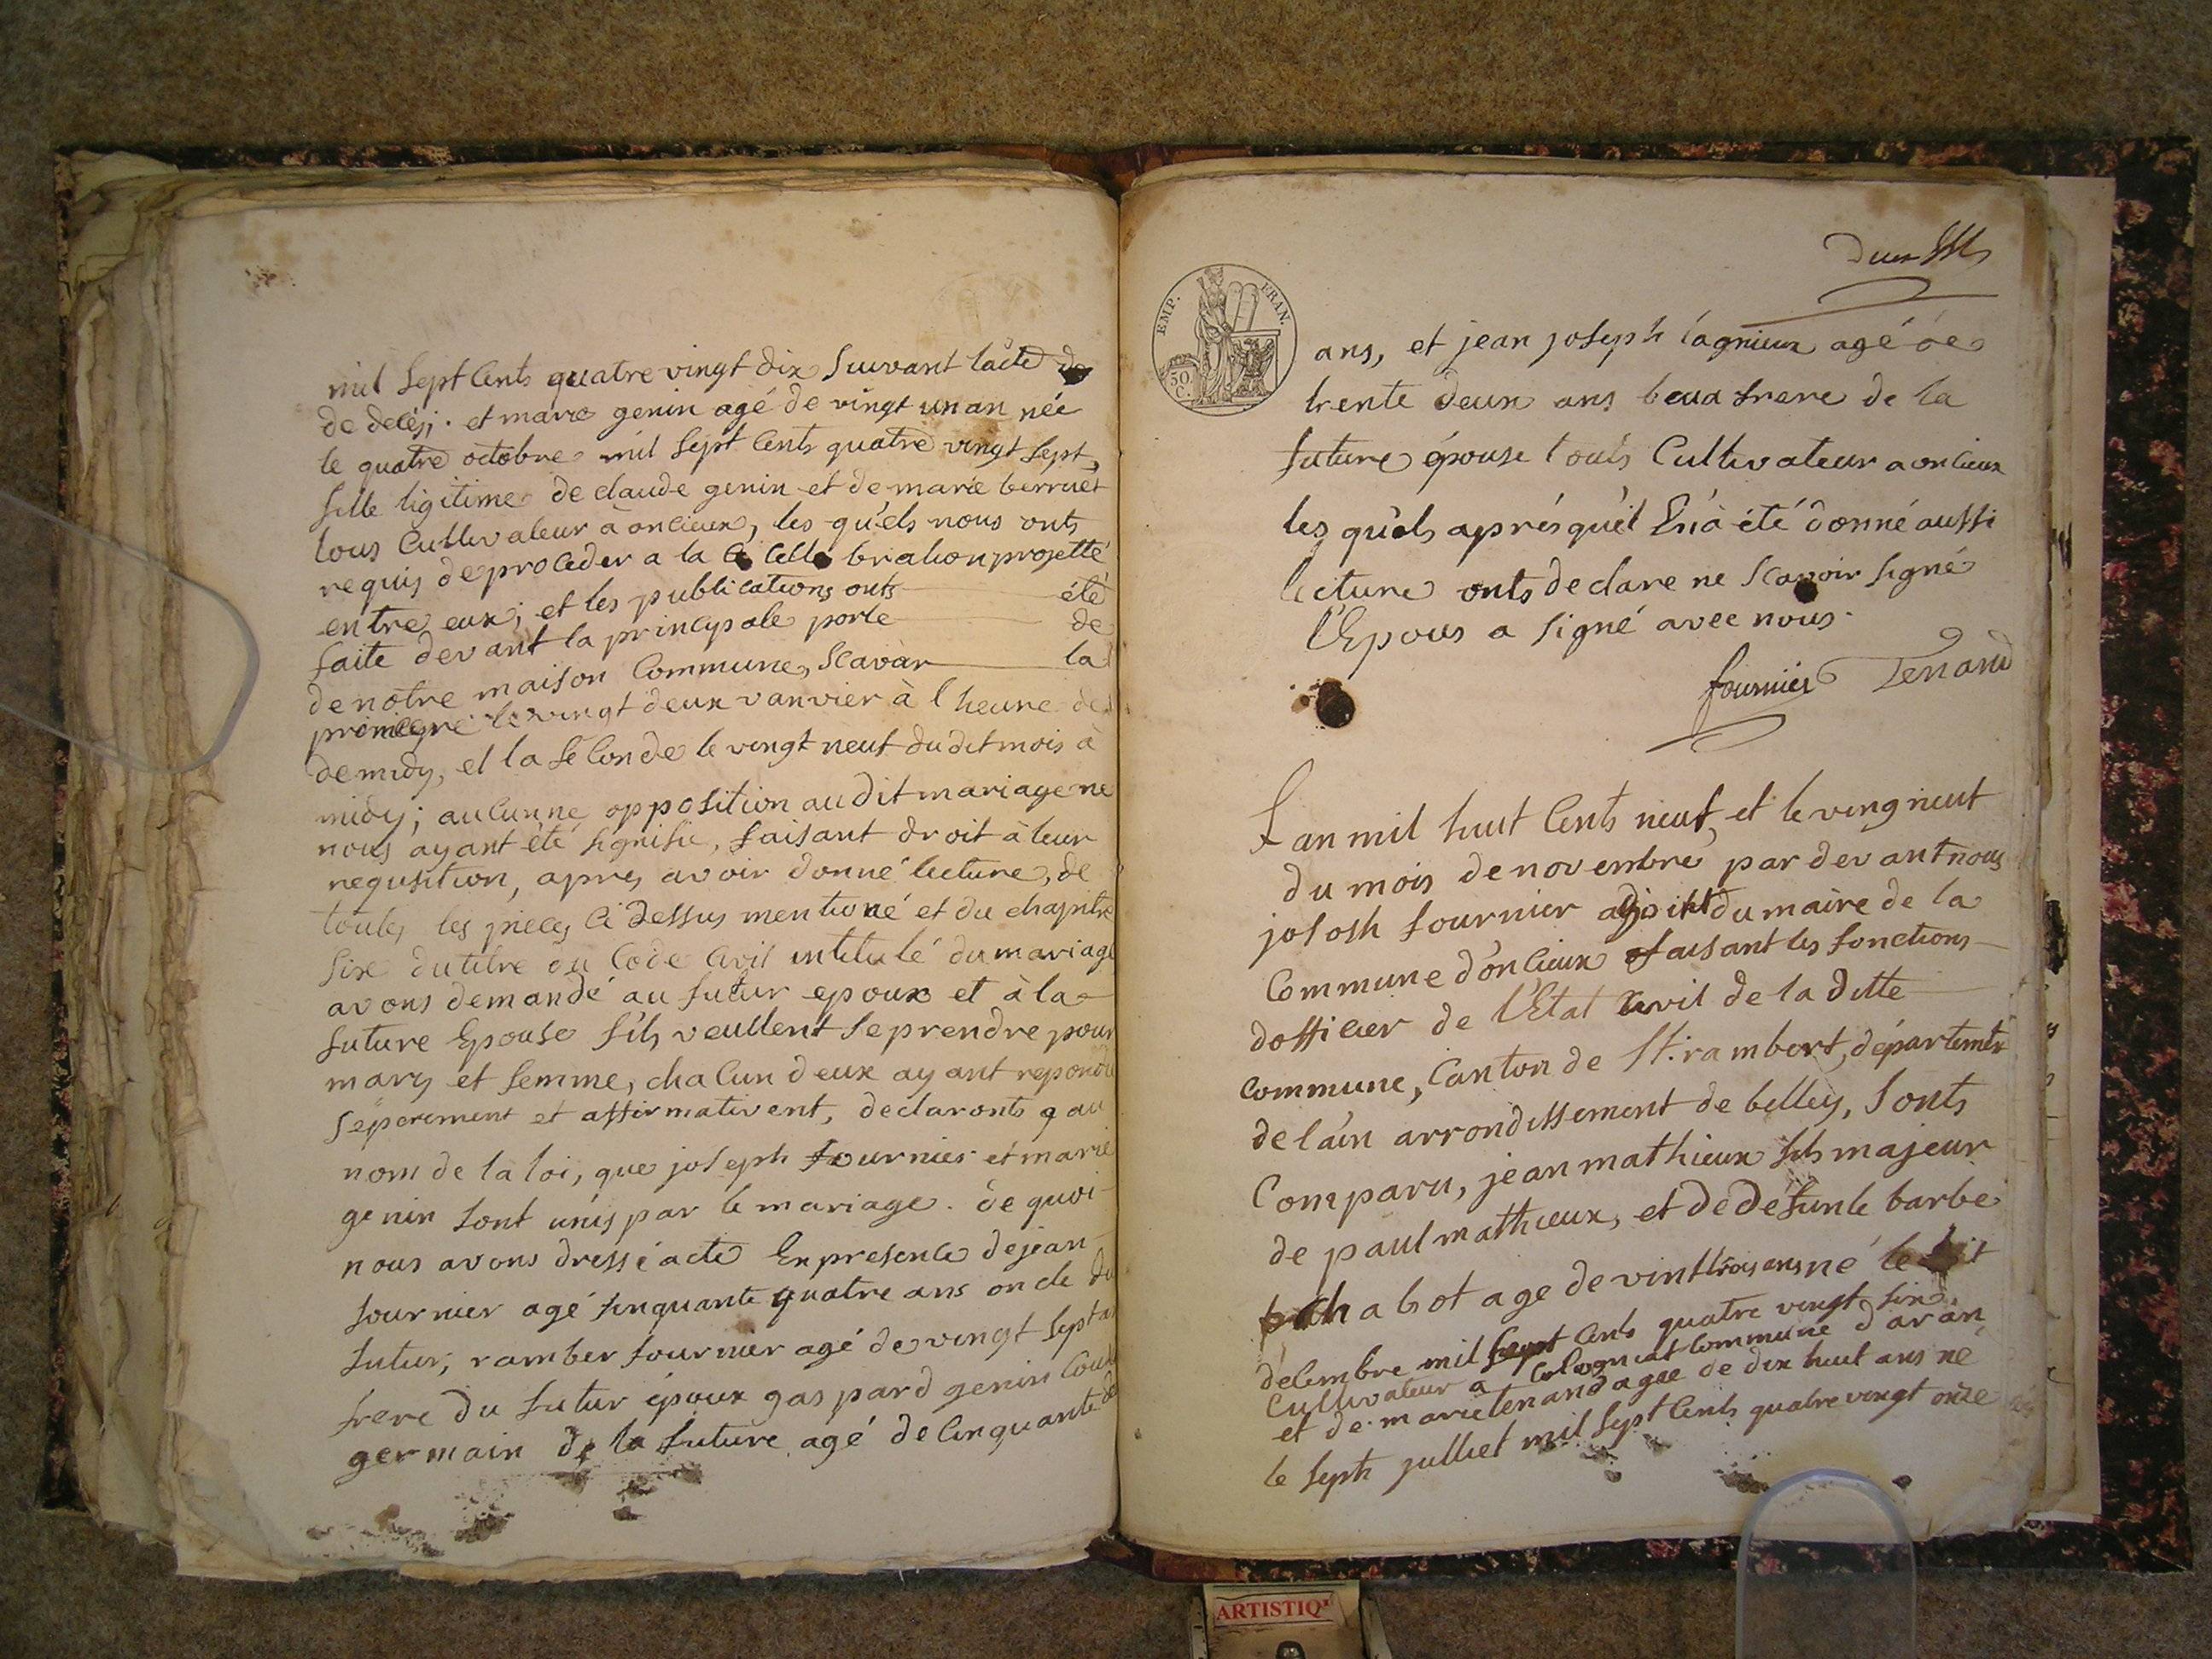 mil Sept Cents quatre vingt dix Suivant lacte de
de deces; et marie genin agé de vingt un an née
le quatre octobre mil Sept Cents quatre vingt Sept,
fille ligitime de claude genin et de marie berruet
tous Cultivateur à onlieux, les quels nous onts
requis de proceder a la Celle bration projetté
entre eux; et les publications onts été
faite devant la principale porte de
de notre maison Commune, Scavoir la
premiere le vingt deux vanvier à l heure de
de midy, et la Seconde le vingt neuf du dit mois à
midy; aucunne opposition audit mariage ne
nous ayant été signifié, faisant droit à leur
requsition, apres avoir donné lecture, de
toutes les pieces Ci dessus mentioné et du chapitre
Six du titre du Code Civil intitulé du mariage
avons demandé au futur epoux et à la
future Epouse S'ils veullent Se prendre pour
mary et femme, chacun deux ayant repondu
Séperement et affirmativent, declaronts q au
nom de la loi, que joseph fournier et marie
genin Sont unis par le mariage. de quoi
nous avons dressé acte En presence de jean
fournier agé Sinquante quatre ans oncle du
futur; ramber fournier agé de vingt Sept an
frere du futur époux gaspard genin Cousin
germain de la future agé de Cinquante de
ans, et jean joseph lagnieux agé de
trente deux ans beaux frere de la
future épouse touts Cultivateur a onlieux
les quels aprés quél En à été donné aussi
lecture onts declare ne Scavoir signé
l'Epoux a signé avec nous.
fournier Tenand
Lan mil huit Cents neuf et le ving neuf
du mois de novembre par devant nous
jososh fournier adjoint du maire de la
Commune d'onlieux faisant les fonctions
dofficier de l'Etat Civil de la ditte
Commune, Canton de St. rambert, départemen
de l'ain arrondissement de belley, Sonts
Comparu, jean mathieux fils majeur
de paul mathieux, et de defunte barbe
Chabot age de vint trois ans né le
decembre mil Sept Cents quatre vingt Six,
Cultivateur a Colognat Commune d'aran
et de marie tenand agée de dix huit ans né
le Sept julliet mil Sept Cents quatre vingt onze
EMP. FRAN.
50 C.
ARTISTIQ